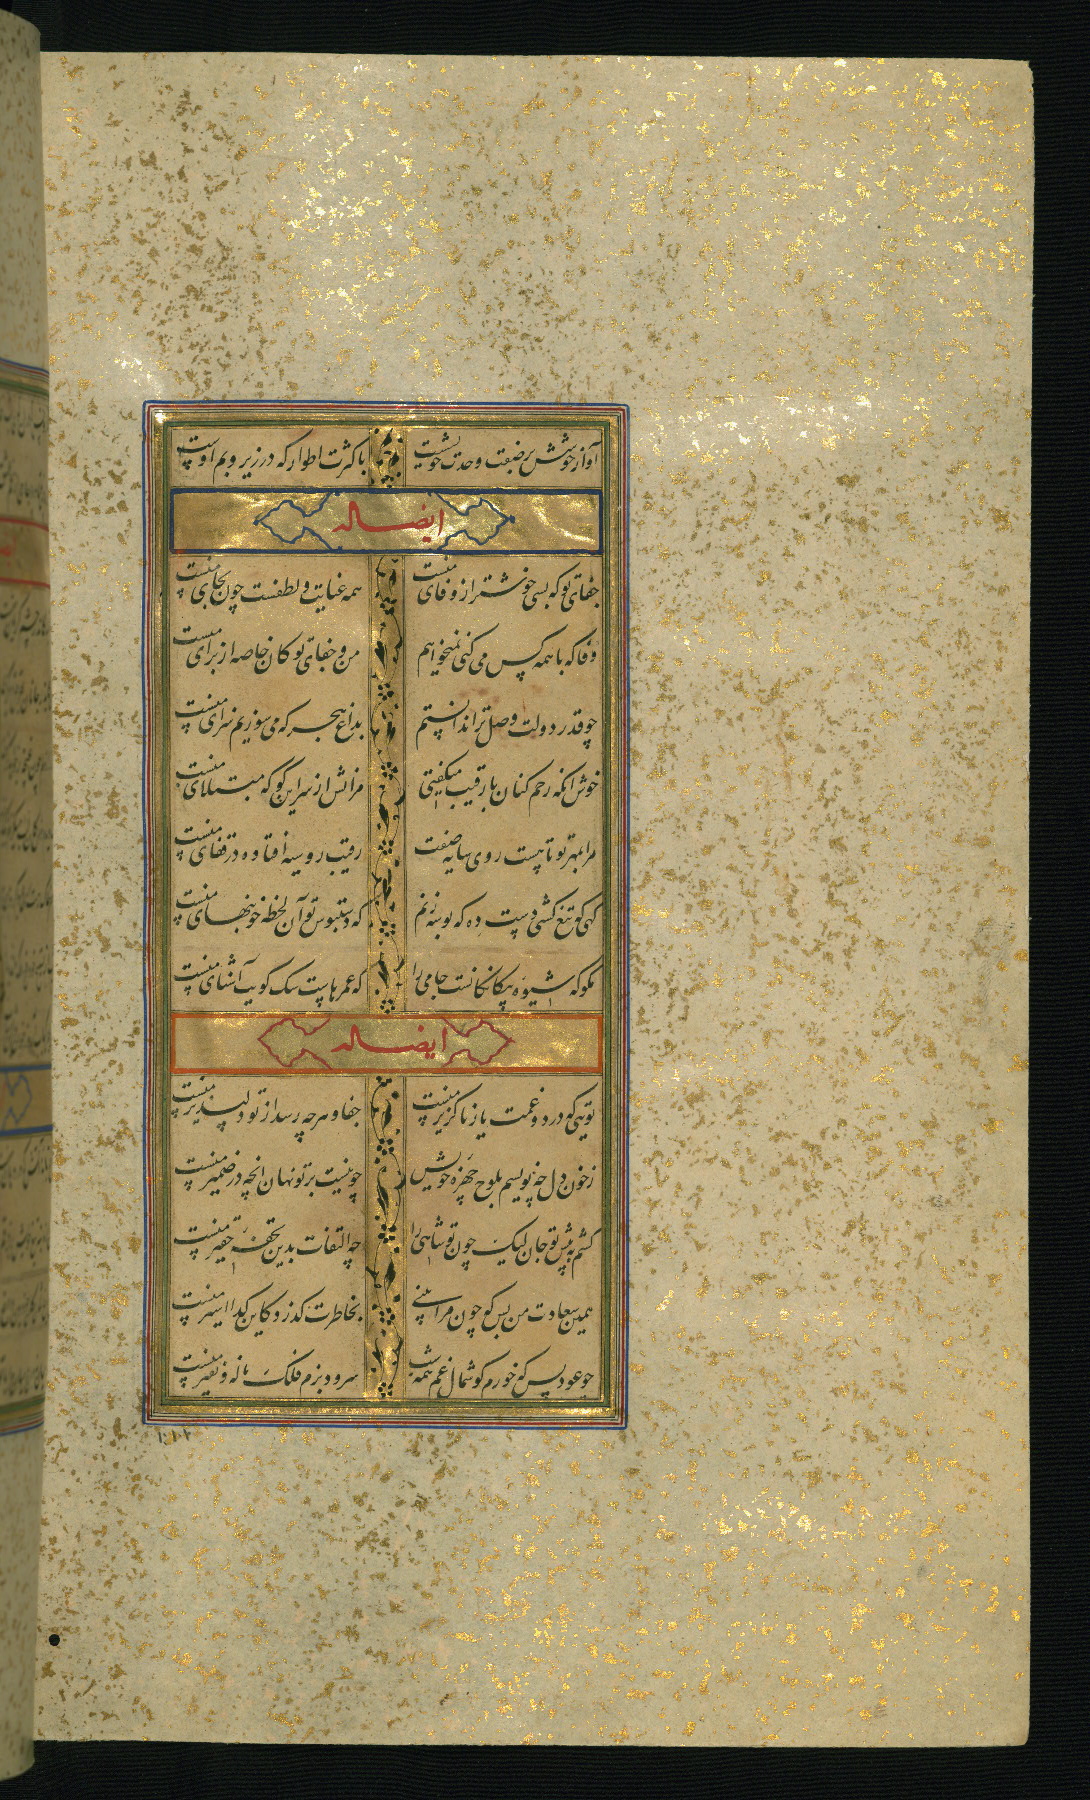 آواز خوشش بر صفت وحدت خویشست با کثرت اطوار که در زیر و بم اوست
ایضا له
جفای تو که بسی خوشتر از وفای منست همه عنایت و لطفست چون بجای منست
وفا که با همه کس می کنی نمیخواهم من و جفای تو کان خاصه از برای منست
چو قدر دولت وصل ترا ندانستم بداغ هجر که می سوزیم سزای منست
خوش آنکه رحم کنان با رقیب میگفتی مرانش از سر این کو که مبتلای منست
مرا بمهر تو تا هست روی سایه صفت رقیب روسیه افتاده در قفای منست
گهی که تیغ کشی دست ده که بوسه زنم که دستبوس تو آن لحظه خونبهای منست
مگو که شیوه بیگانگانست جامی را که عمرهاست سگ کویت آشنای منست
ایضا له
تویی که درد و غمت یار ناگزیر منست جفا و هر چه رسد از تو دلپذیر منست
ز خون دل چه نویسم بلوح چهره خویش چو نیست بر تو نهان انچه در ضمیر منست
کشم به پیش تو جان لیک چون تو شاهی را چه التفات بدین تحفه حقیر منست
همین سعادت من بس که چون مرا بینی بخاطرت گذرد کاین گدا اسیر منست
چو عود بس که خورم گوشمال غم همه شب سرود بزم فلک ناله و نفیر منست